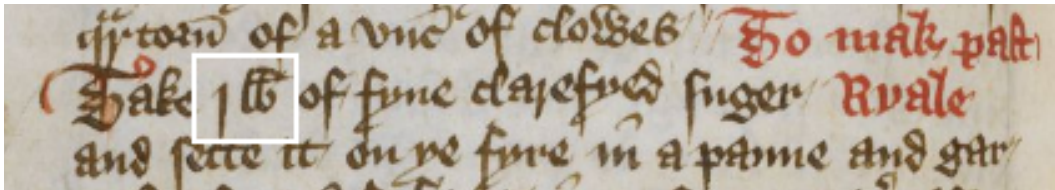 qrtorn̄ of a vnc̄ of clowes To mak past
Take j lb̄ of fyne clarefyed suger Ryale
and sette it on ye fyre in a panne and gar